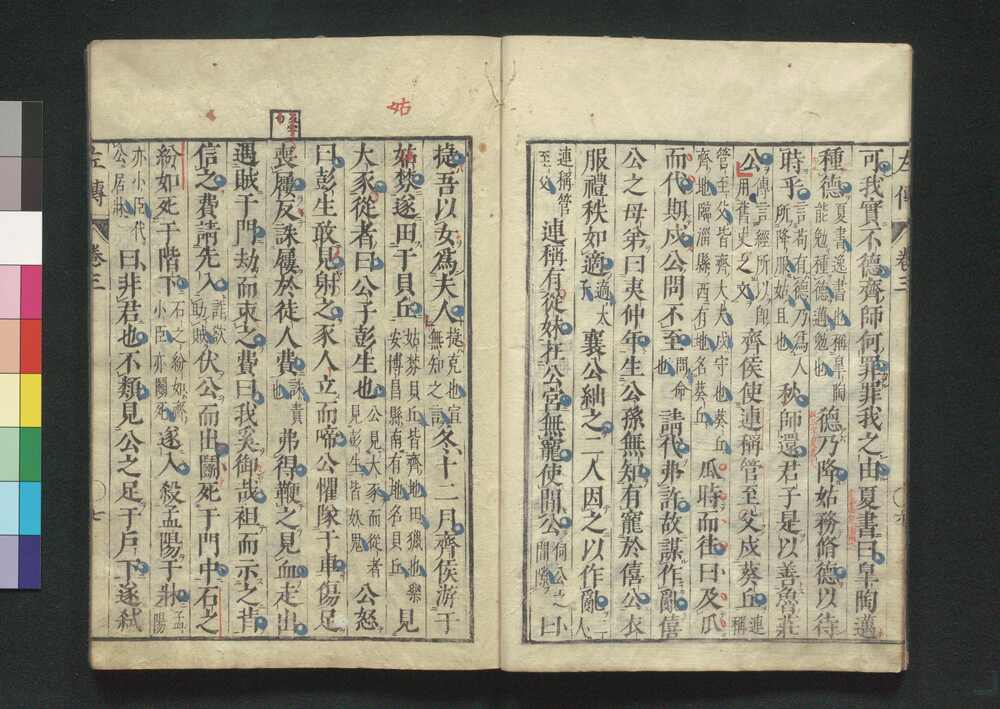 可我實不德齊師何罪罪我之由夏書曰皐陶邁
種德夏書逸書也稱皐陶能勉種德邁勉也德乃降姑務脩德以待
時乎言苟有德乃爲人所降服姑且也秋師還君子是以善魯莊
公傳言經所以即用舊史之文齊侯使連稱管至父戍葵丘連稱
管至父皆齊大夫戍守也葵丘齊地臨淄縣西有地名葵丘瓜時而往曰及瓜
而代期戍公問不至問命也請代弗許故謀作亂僖
公之母弟曰夷仲年生公孫無知有寵於僖公衣
服禮秩如適適太子襄公絀之二人因之以作亂二人
連稱管至父連稱有從妹在公宮無寵使間公伺公之間隙曰
左傳
卷三
捷吾以女爲夫人捷克也宣無知之言冬十二月齊侯游于
姑棼遂田于貝丘姑棼貝丘皆齊地田獵也樂安博昌縣南有地名貝丘見
大豕從者曰公子彭生也公見大豕而從者見彭生皆妖鬼公怒
曰彭生敢見射之豕人立而啼公懼隊于車傷足
喪屨反誅屨於徒人費誅責也弗得鞭之見血走出
遇賊于門劫而束之費曰我奚御哉袒而示之背
信之費請先入詐欲助賊伏公而出鬬死于門中石之
紛如死于階下石之紛如齊小臣亦鬬死遂入殺孟陽于牀孟陽
亦小臣代公居牀曰非君也不類見公之足于戶下遂弑
左傳
卷三
七
姑